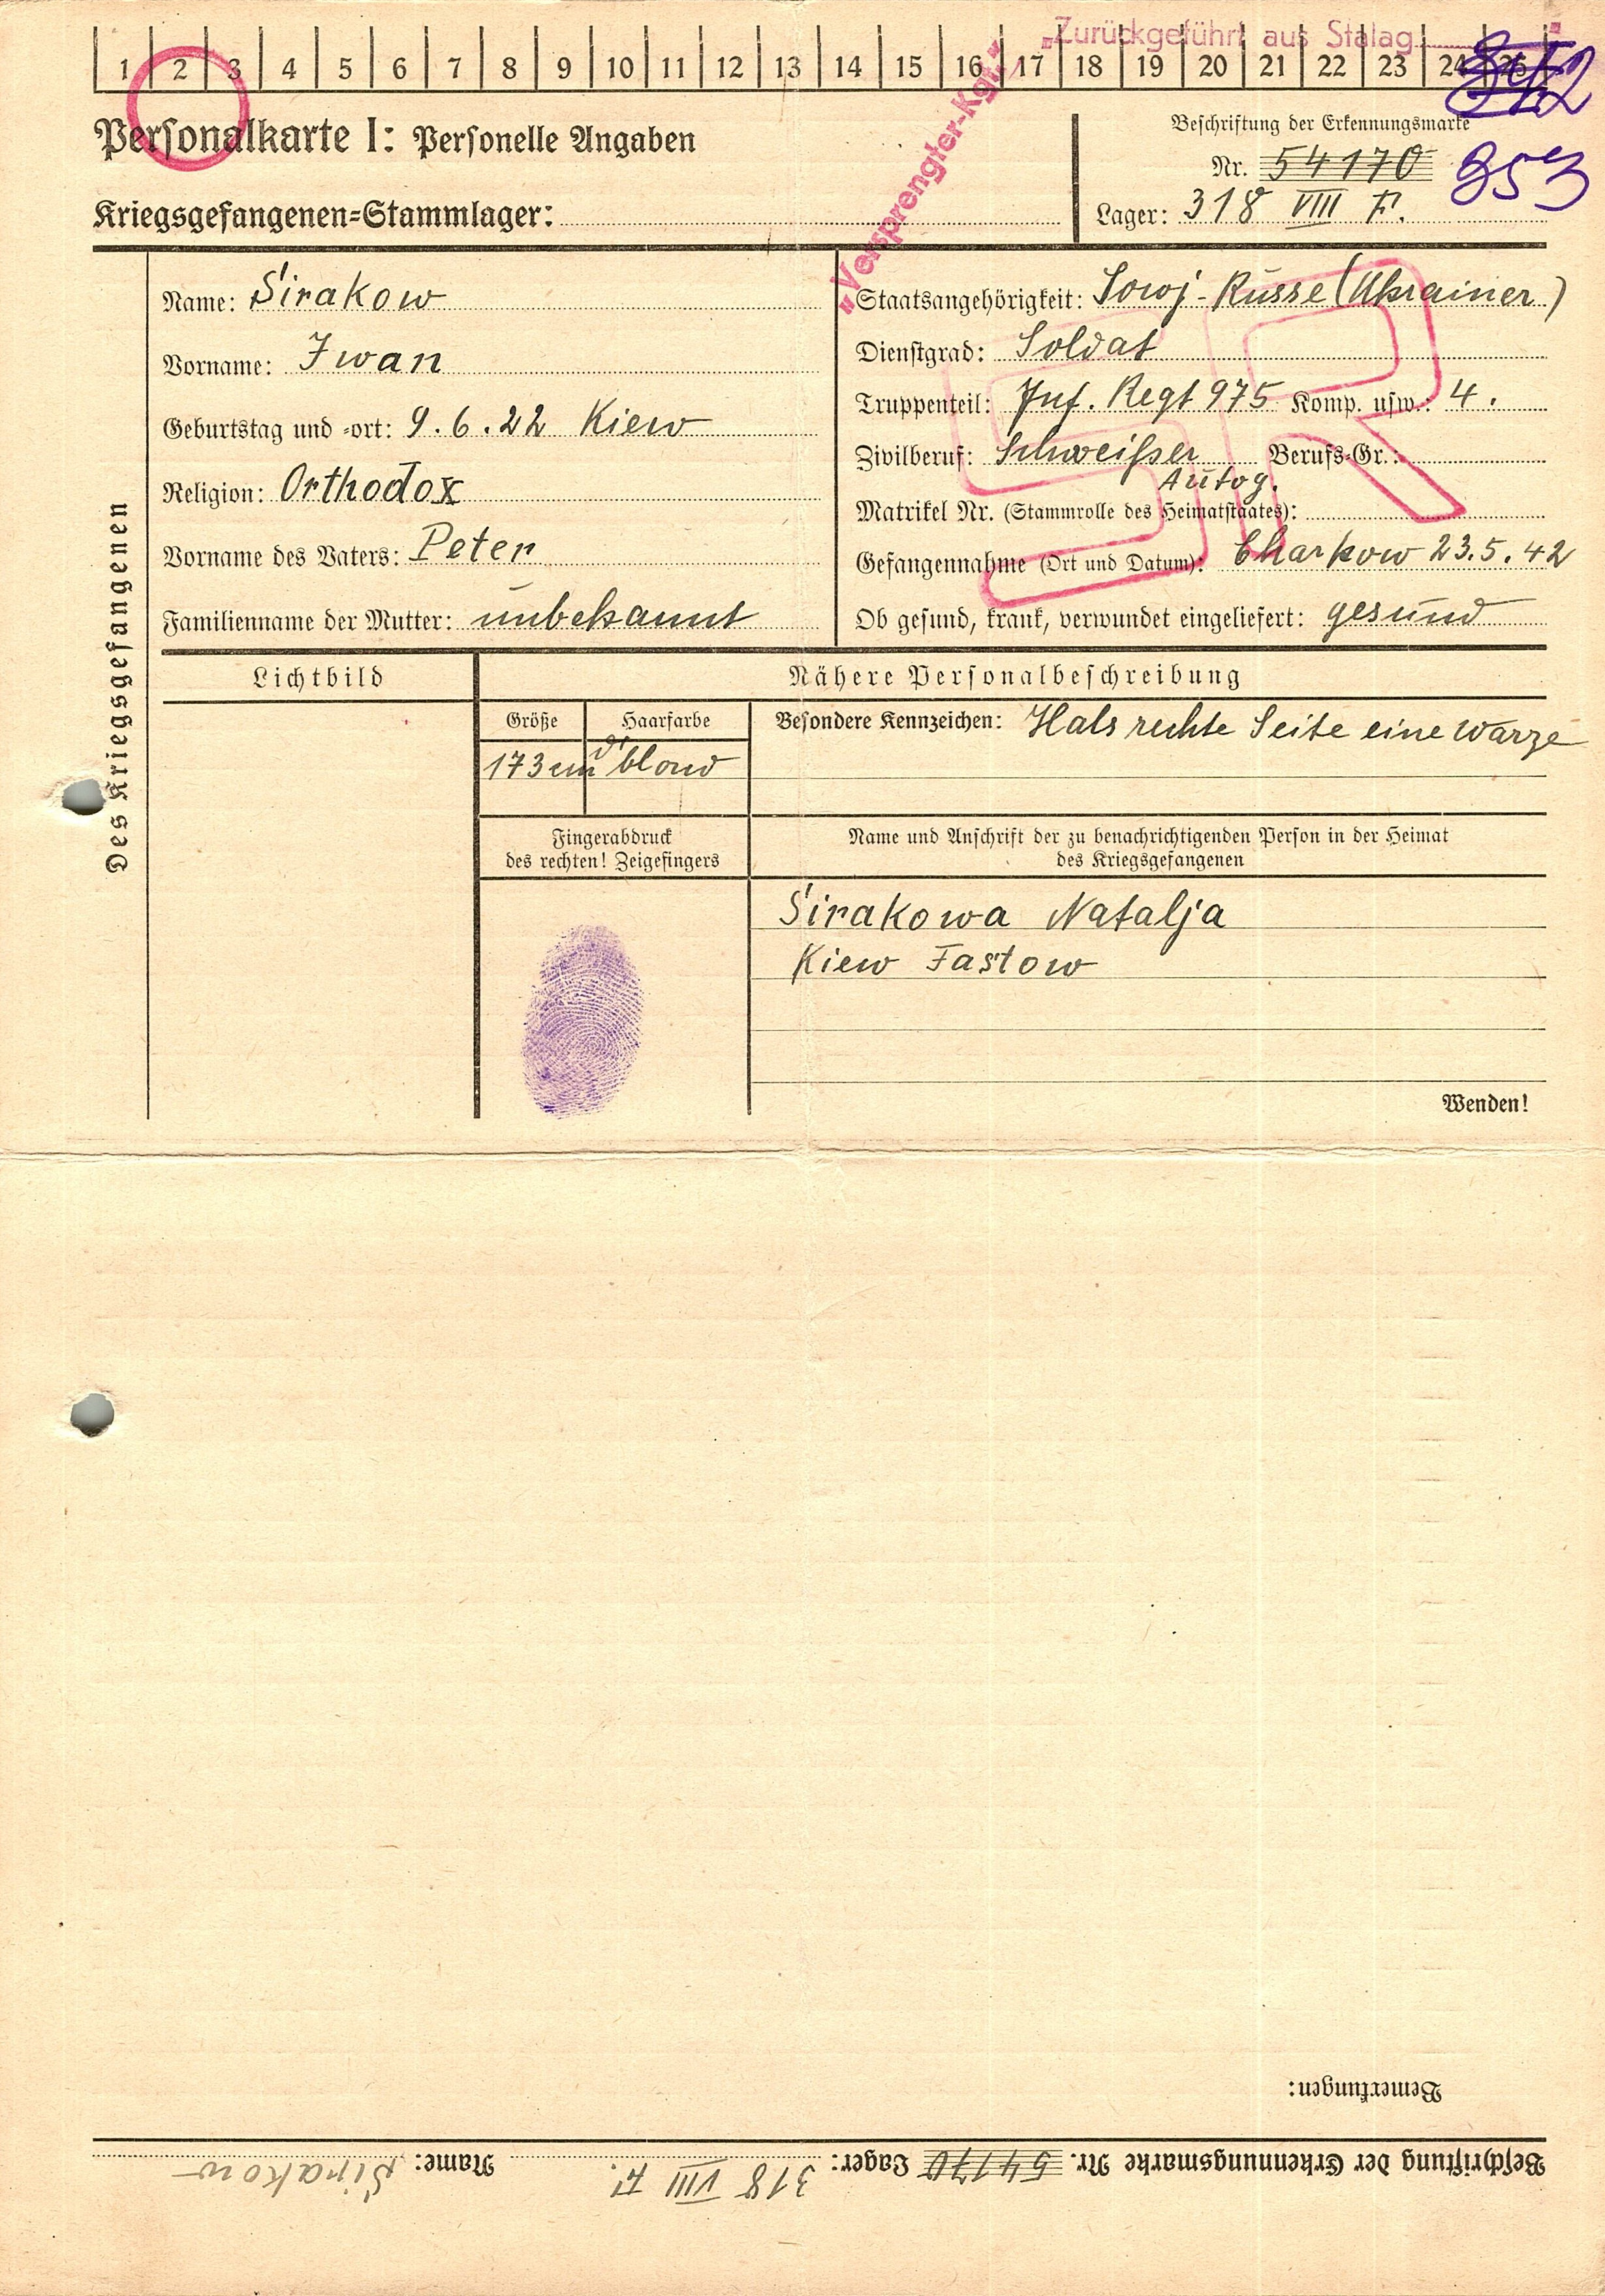 „Zurückgeführt aus Stalag
1 2 3 4 5 6 7 8 9 10 11 12 13 14 15 16 17 18 19 20 21 22 23 24 25
„Versprengter-Kgf.“
Personalkarte I: Personelle Angaben
Beschriftung der Erkennungsmarke
Nr. 54170 953
Kriegsgefangenen-Stammlager:
Lager: 318 VIII F.
Des Kriegsgefangenen
Name: Sirakow
Vorname: Iwan
Geburtstag und -ort: 9.6.22 Kiew
Religion: Orthodox
Vorname des Vaters: Peter
Familienname der Mutter: unbekannt
Staatsangehörigkeit: Sowj-Russe (Ukrainer)
Dienstgrad: Soldat
Truppenteil: Inf. Regt 975 Komp. usw.: 4.
Zivilberuf: Schweißer Berufs-Gr.:
Autog.
Matrikel Nr. (Stammrolle des Heimatstaates):
Gefangennahme (Ort und Datum): Charkow 23.5.42
Ob gesund, krank, verwundet eingeliefert: gesund
SR
Lichtbild
Nähere Personalbeschreibung
Größe Haarfarbe
173 cm d'blond
Besondere Kennzeichen: Hals rechte Seite eine Warze
Fingerabdruck
des rechten! Zeigefingers
Name und Anschrift der zu benachrichtigenden Person in der Heimat
des Kriegsgefangenen
Sirakowa Natalja
Kiew Fastow
Wenden!
Bemerkungen:
Beschriftung der Erkennungsmarke Nr. 54170 Lager: 318 VIII F. Name: Sirakow